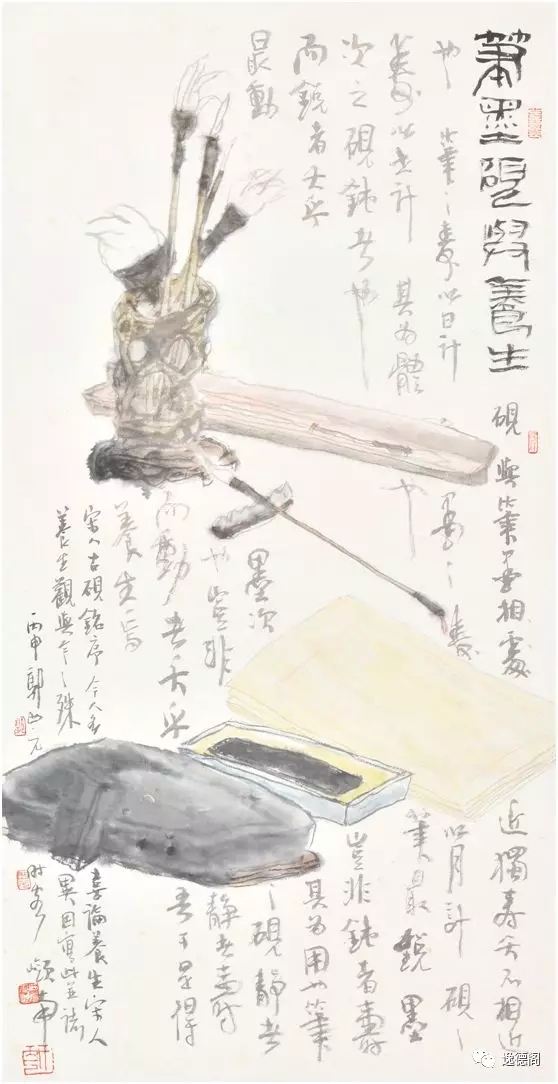 筆墨硯與養生
硯與筆墨相處近獨壽夭不相近
也筆之壽以日計墨之壽以月計硯之
壽以世計其為體也筆最銳墨
次之硯鈍者也豈非鈍者壽
而銳者夭乎其為用也筆
最動墨次之硯靜者
也豈非靜者壽
而動者夭乎吾於是得
養生焉
宋人古硯銘序今人多喜論養生宋人
養生觀與今之殊異因寫此並識
丙申郭西元時客嶺南
逸德阁